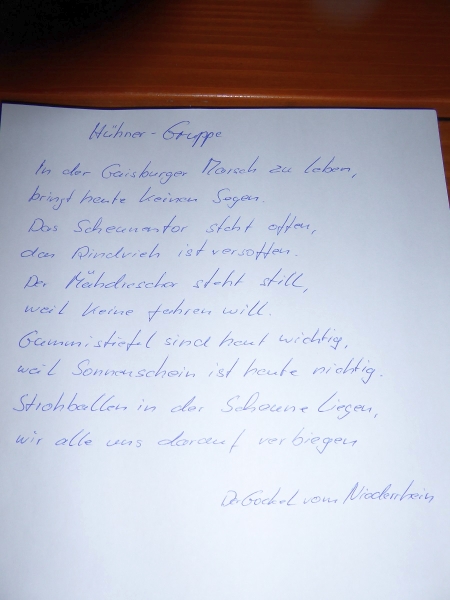 Hühner-Gruppe
In der Gaisburger Marsch zu leben,
bringt heute keinen Segen.
Das Scheunentor steht offen,
das Rindvieh ist versoffen.
Der Mähdrescher steht still,
weil keine fahren will.
Gummistiefel sind heut wichtig,
weil Sonnenschein ist heute nichtig.
Strohballen in der Scheune liegen,
wir alle uns darauf verbiegen
Der Gockel vom Niederrhein